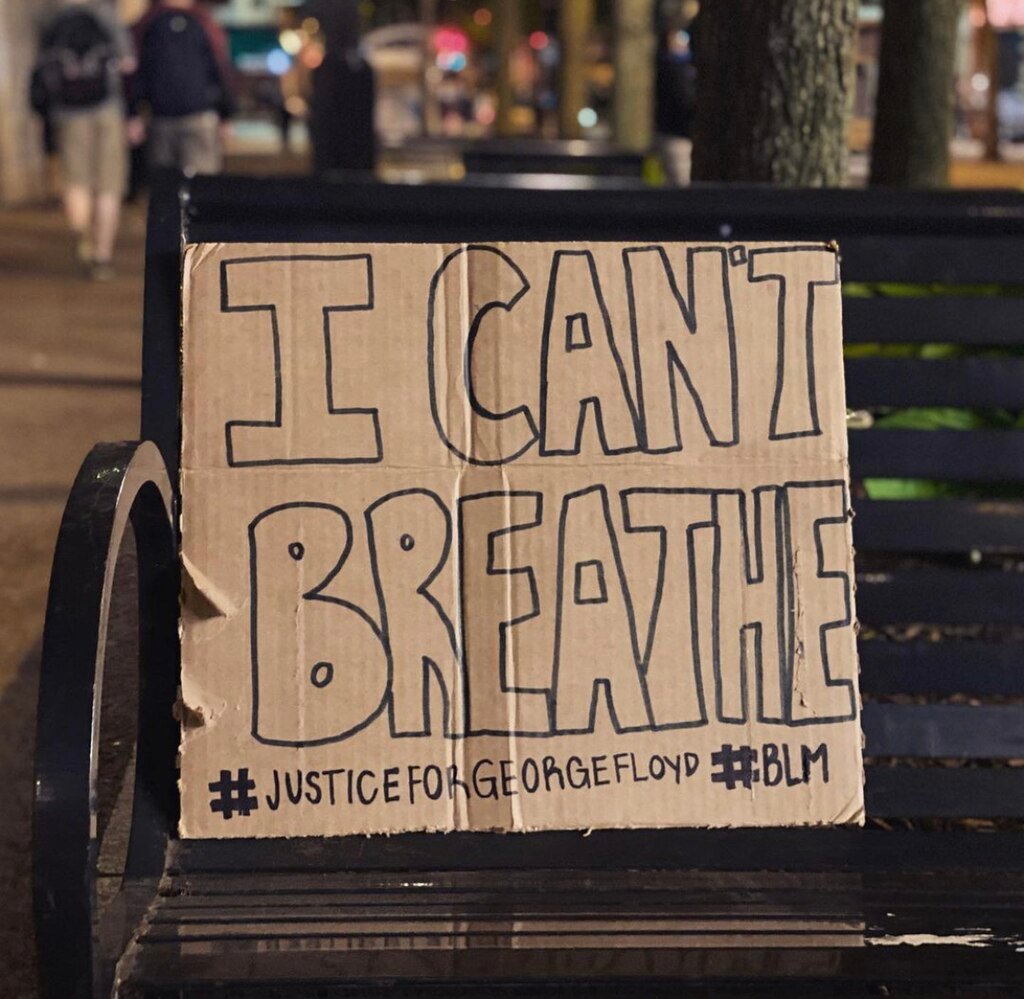 I CAN'T
BREATHE
#JUSTICEFORGEORGEFLOYD #BLM